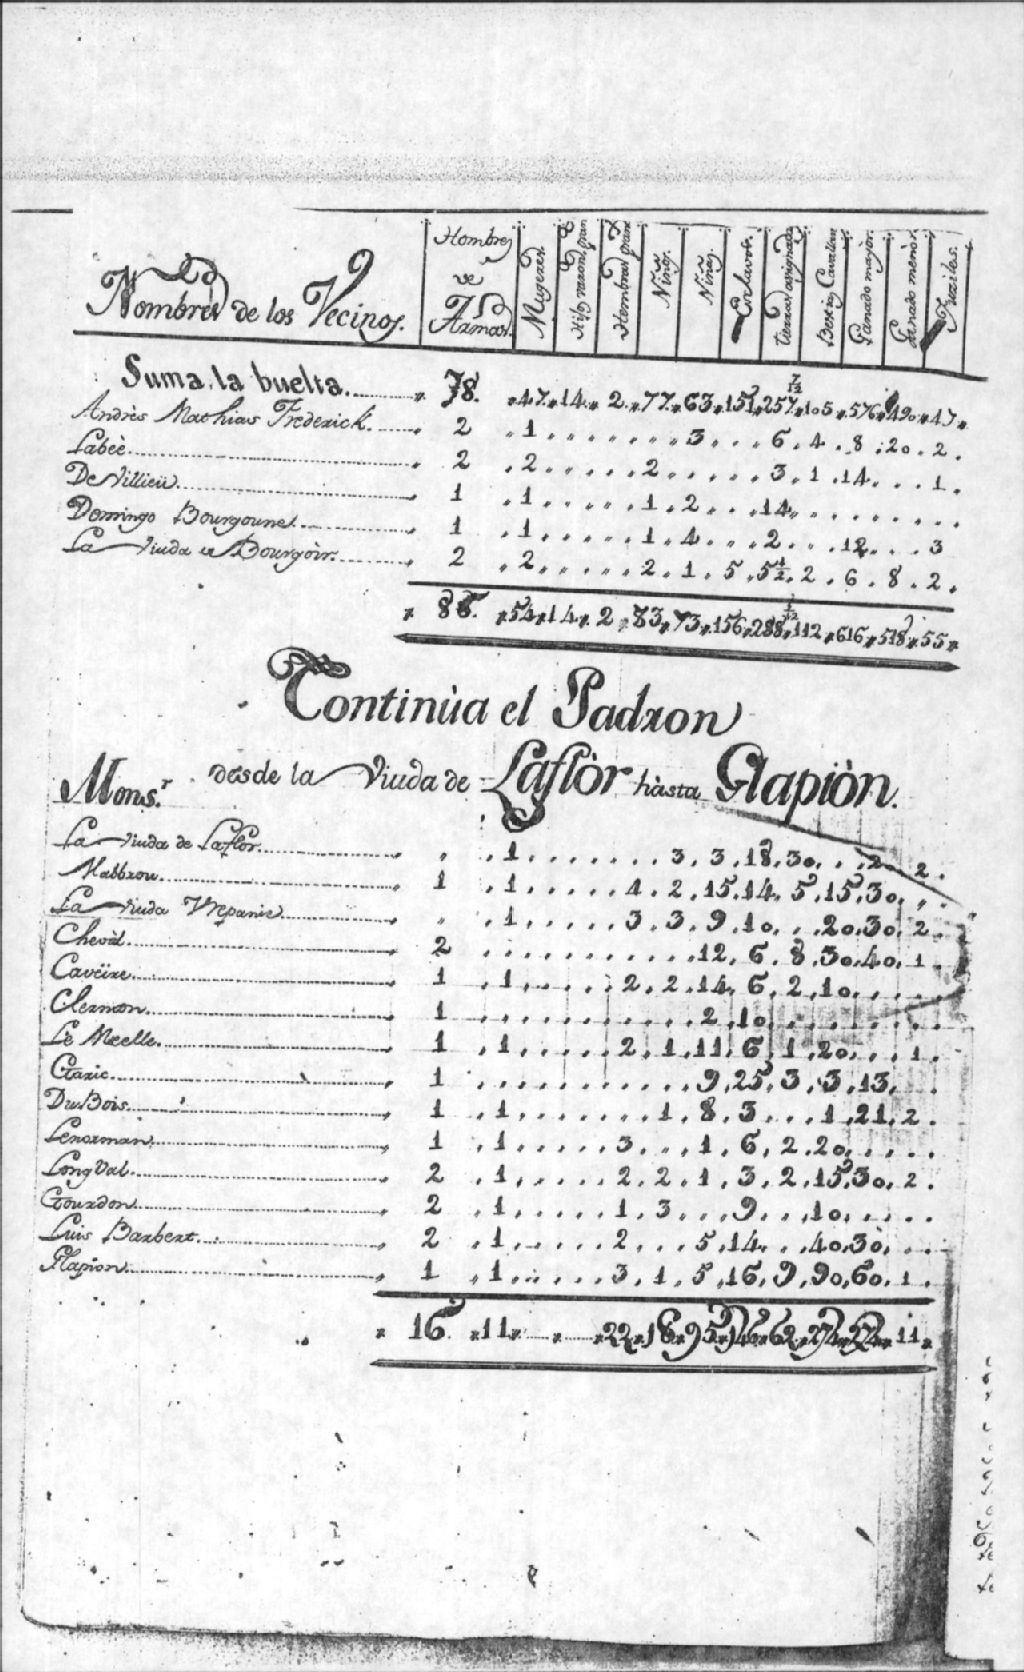 Nombres de los Vecinos. Hombres de Armas. Mugeres Hijos varon.s gran.s Hembras gran.s Niños. Niñas. Esclavos. tierras asignadas Bestias Cavallar Ganado mayòr. Ganado menòr. Fuziles.
Suma la buelta. 78. 47. 14. 2. 77. 63. 151. 257 7/12. 105. 576. 490. 47.
Andrès Mathias Frederick. 2 1 3 6 4 8 20 2
Labeè. 2 2 2 3 1 14 1
De Villieù. 1 1 1 2 14
Domingo Bourgounel. 1 1 1 4 2 12 3
La Viuda de Bourgòir. 2 2 2 1 5 5 1/2 2 6 8 2
86. 54. 14. 2. 83. 73. 156. 288 1/12. 112. 616. 518. 55.
Continùa el Padron
desde la Viuda de Laflòr hàsta Glapiòn.
Mons.r
La Viuda de Laflòr. 1 3 3 18 30 2 2
Malbrou. 1 1 4 2 15 14 5 15 30
La Viuda 1 3 3 9 10 20 30 2
Chevàl. 2 12 6 8 30 40 1
Caveïre. 1 1 2 2 14 6 2 10
Clermon. 1 2 10
Lè 1 1 2 1 11 6 1 20 1
Garic. 1 9 25 3 3 13
DuBois. 1 1 1 8 3 1 21 2
Lenorman. 1 1 3 1 6 2 20
LongVal. 2 1 2 2 1 3 2 15 30 2
Gourdon. 2 1 1 3 9 10
Luis Barbert. 2 1 2 5 14 40 30
Glapion. 1 1 3 1 5 16 9 90 60 1
16 11 22 18 95 146 62 274 274 11